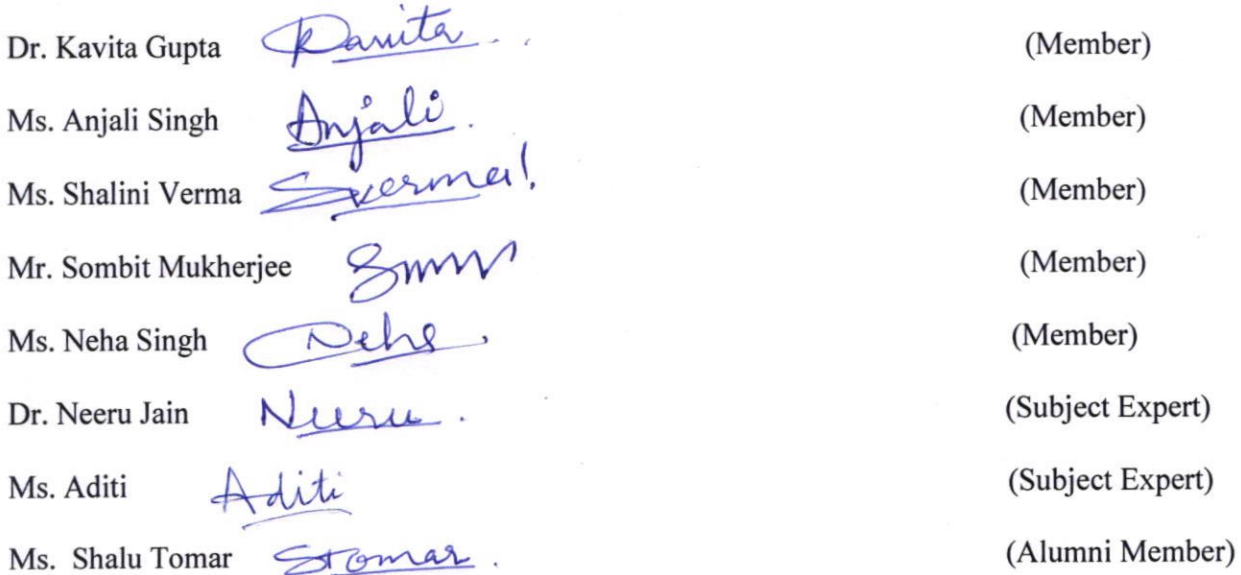 Dr. Kavita Gupta Kavita (Member)
Ms. Anjali Singh Anjali (Member)
Ms. Shalini Verma SVerma (Member)
Mr. Sombit Mukherjee (Member)
Ms. Neha Singh Neha (Member)
Dr. Neeru Jain Neeru (Subject Expert)
Ms. Aditi Aditi (Subject Expert)
Ms. Shalu Tomar STomar (Alumni Member)